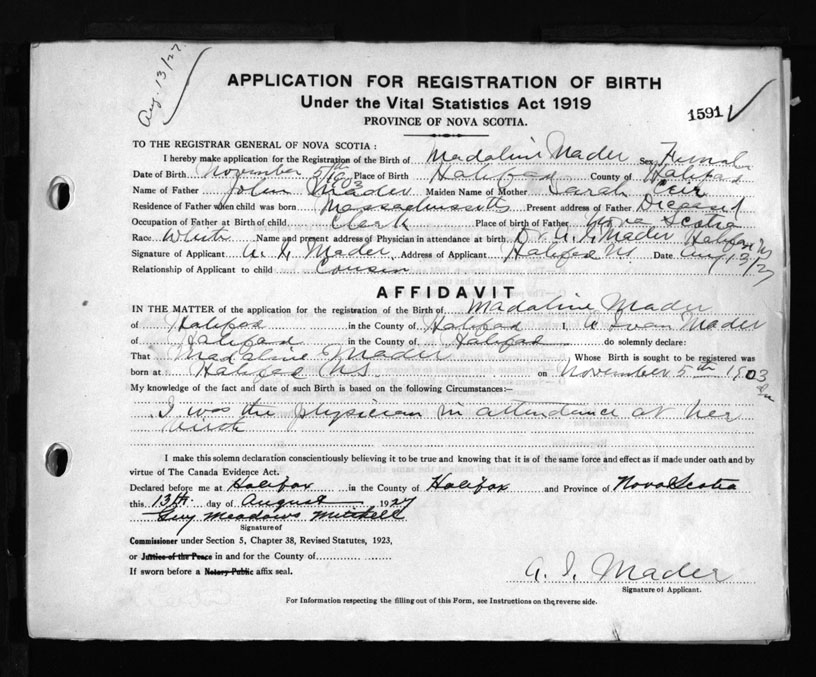 Aug. 13/27
APPLICATION FOR REGISTRATION OF BIRTH
Under the Vital Statistics Act 1919
PROVINCE OF NOVA SCOTIA.
1591
TO THE REGISTRAR GENERAL OF NOVA SCOTIA:
I hereby make application for the Registration of the Birth of Madaline Mader Sex Female
Date of Birth November 5th 1903 Place of Birth Halifax County of Halifax
Name of Father John Mader Maiden Name of Mother Sarah
Residence of Father when child was born Massachusetts Present address of Father Diceased
Occupation of Father at Birth of child Clerk Place of birth of Father Nova Scotia
Race White Name and present address of Physician in attendance at birth Dr. A. I. Mader Halifax NS
Signature of Applicant A. I. Mader Address of Applicant Halifax NS Date Aug 13/27
Relationship of Applicant to child Cousin
AFFIDAVIT
IN THE MATTER of the application for the registration of the Birth of Madaline Mader
of Halifax in the County of Halifax I, A Ivan Mader
of Halifax in the County of Halifax do solemnly declare:
That Madaline Mader Whose Birth is sought to be registered was
born at Halifax NS on November 5th 1903
My knowledge of the fact and date of such Birth is based on the following Circumstances:—
I was the physician in attendance at her
birth
I make this solemn declaration conscientiously believing it to be true and knowing that it is of the same force and effect as if made under oath and by
virtue of The Canada Evidence Act.
Declared before me at Halifax in the County of Halifax and Province of Nova Scotia
this 13th day of August 1927
Guy Meadows Mitchell
Signature of
Commissioner under Section 5, Chapter 38, Revised Statutes, 1923,
or Justice of the Peace in and for the County of
If sworn before a Notary Public affix seal.
A. I. Mader
Signature of Applicant.
For Information respecting the filling out of this Form, see Instructions on the reverse side.